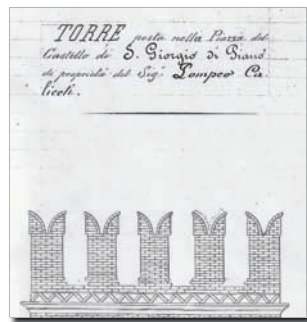 TORRE posta nella Piazza del
Castello di S. Giorgio di Piano
di proprietà del Sig. Pompeo Ca
liceti.